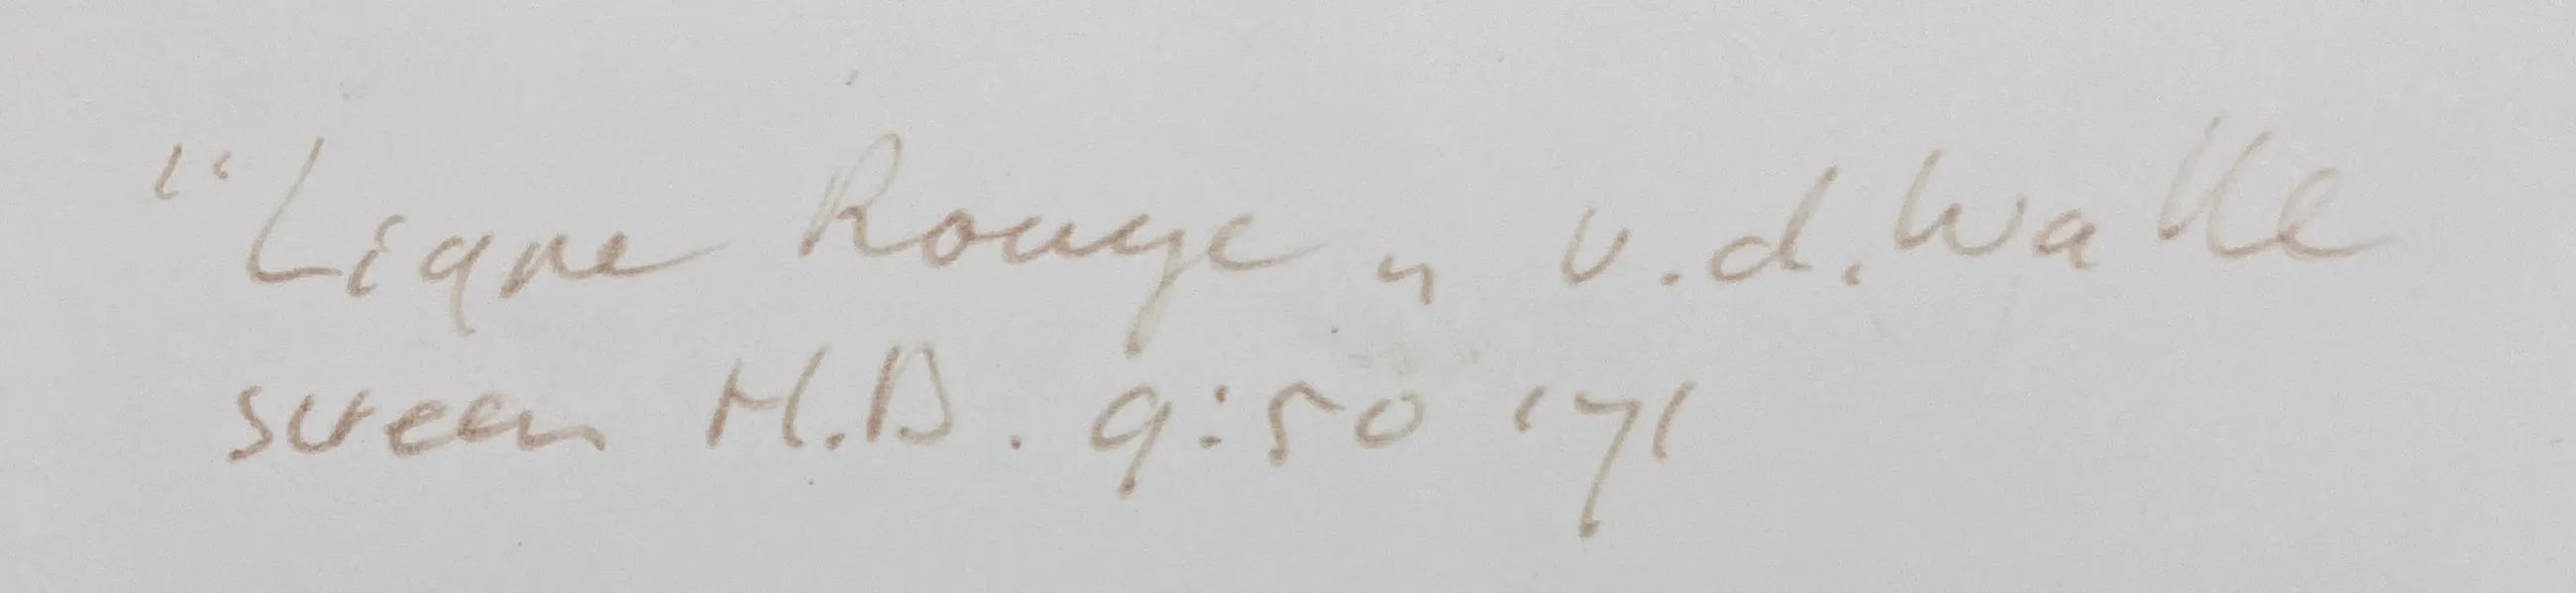 "Ligne Rouge„ v.d. Walle
screen H.D. 9:50 '71